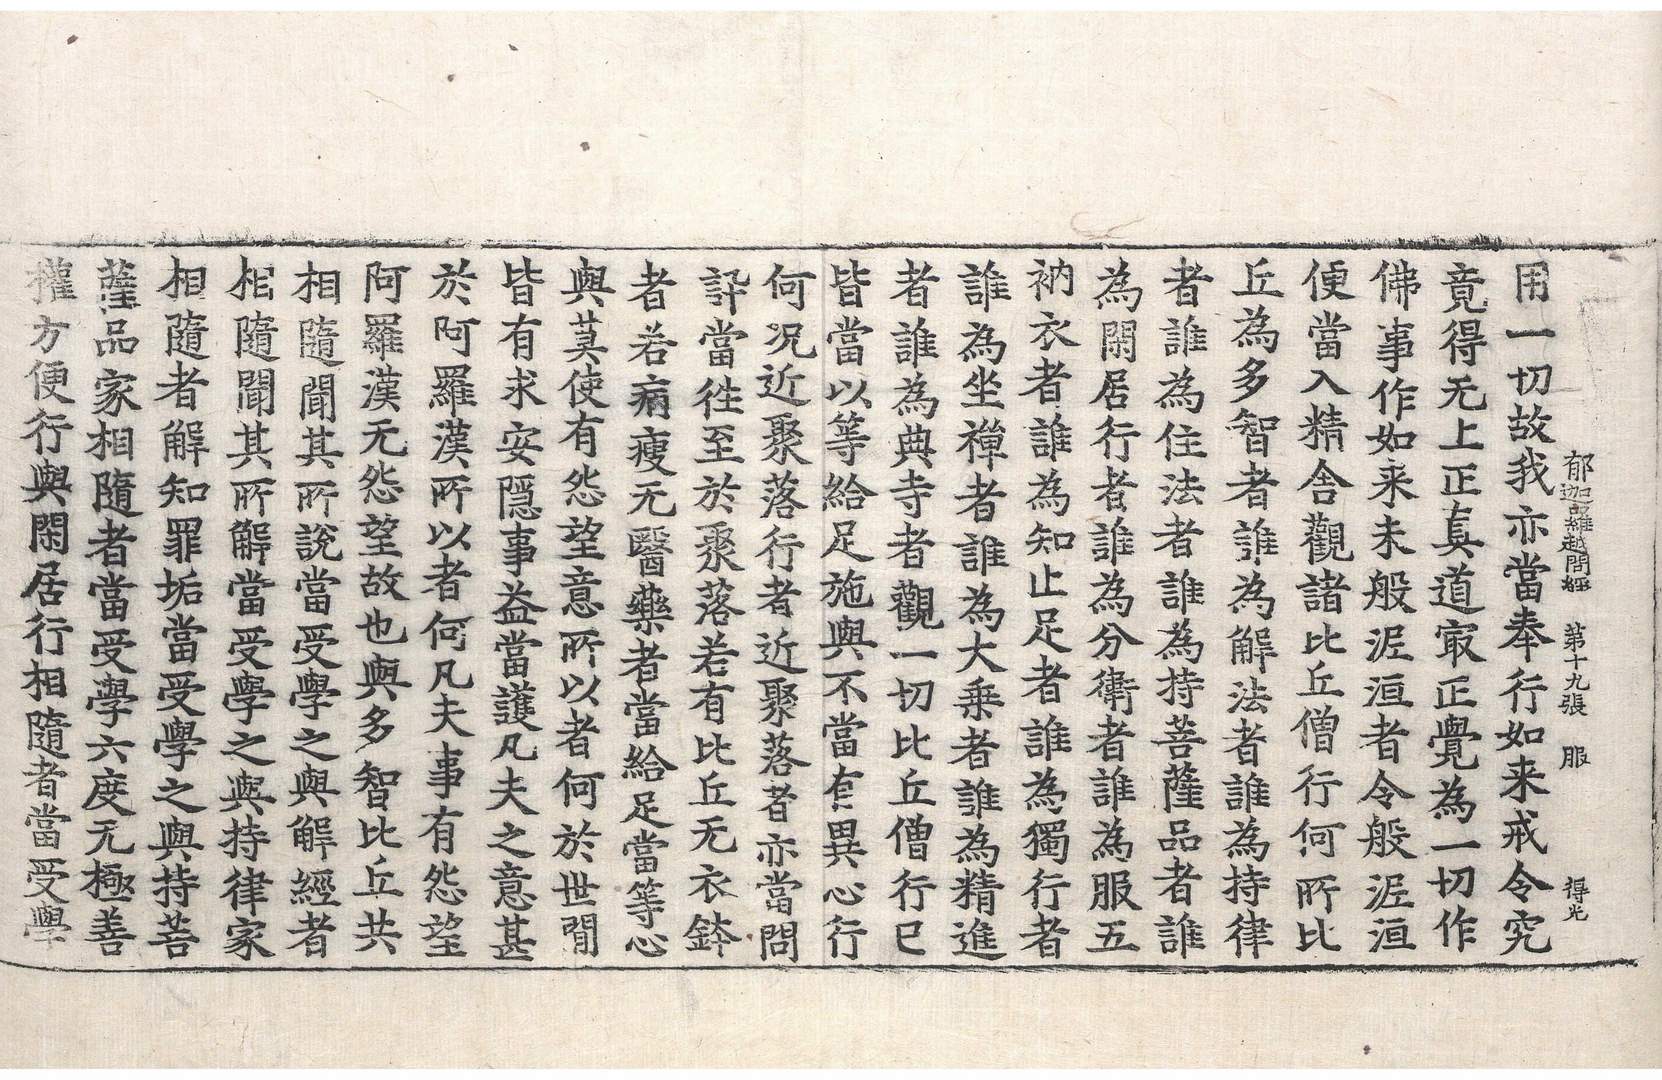 郁迦羅越問經　第十九張　服　得光
用一切故我亦當奉行如来戒令究
竟得无上正真道㝡正覺為一切作
佛事作如来未般泥洹者令般泥洹
便當入精舍觀諸比丘僧行何所比
丘為多智者誰為解法者誰為持律
者誰為住法者誰為持菩薩品者誰
為閑居行者誰為分衛者誰為服五
衲衣者誰為知止足者誰為獨行者
誰為坐禪者誰為大乗者誰為精進
者誰為典寺者觀一切比丘僧行已
皆當以等給足施與不當有異心行
何況近聚落行者近聚落者亦當問
訊當往至於聚落若有比丘无衣鉢
者若病瘦无醫藥者當給足當等心
與莫使有怨望意所以者何於世間
皆有求安隱事益當護凡夫之意甚
於阿羅漢所以者何凡夫事有怨望
阿羅漢无怨望故也與多智比丘共
相隨聞其所說當受學之與解經者
相隨聞其所解當受學之與持律家
相隨者解知罪垢當受學之與持菩
薩品家相隨者當受學六度无極善
權方便行與閑居行相隨者當受學